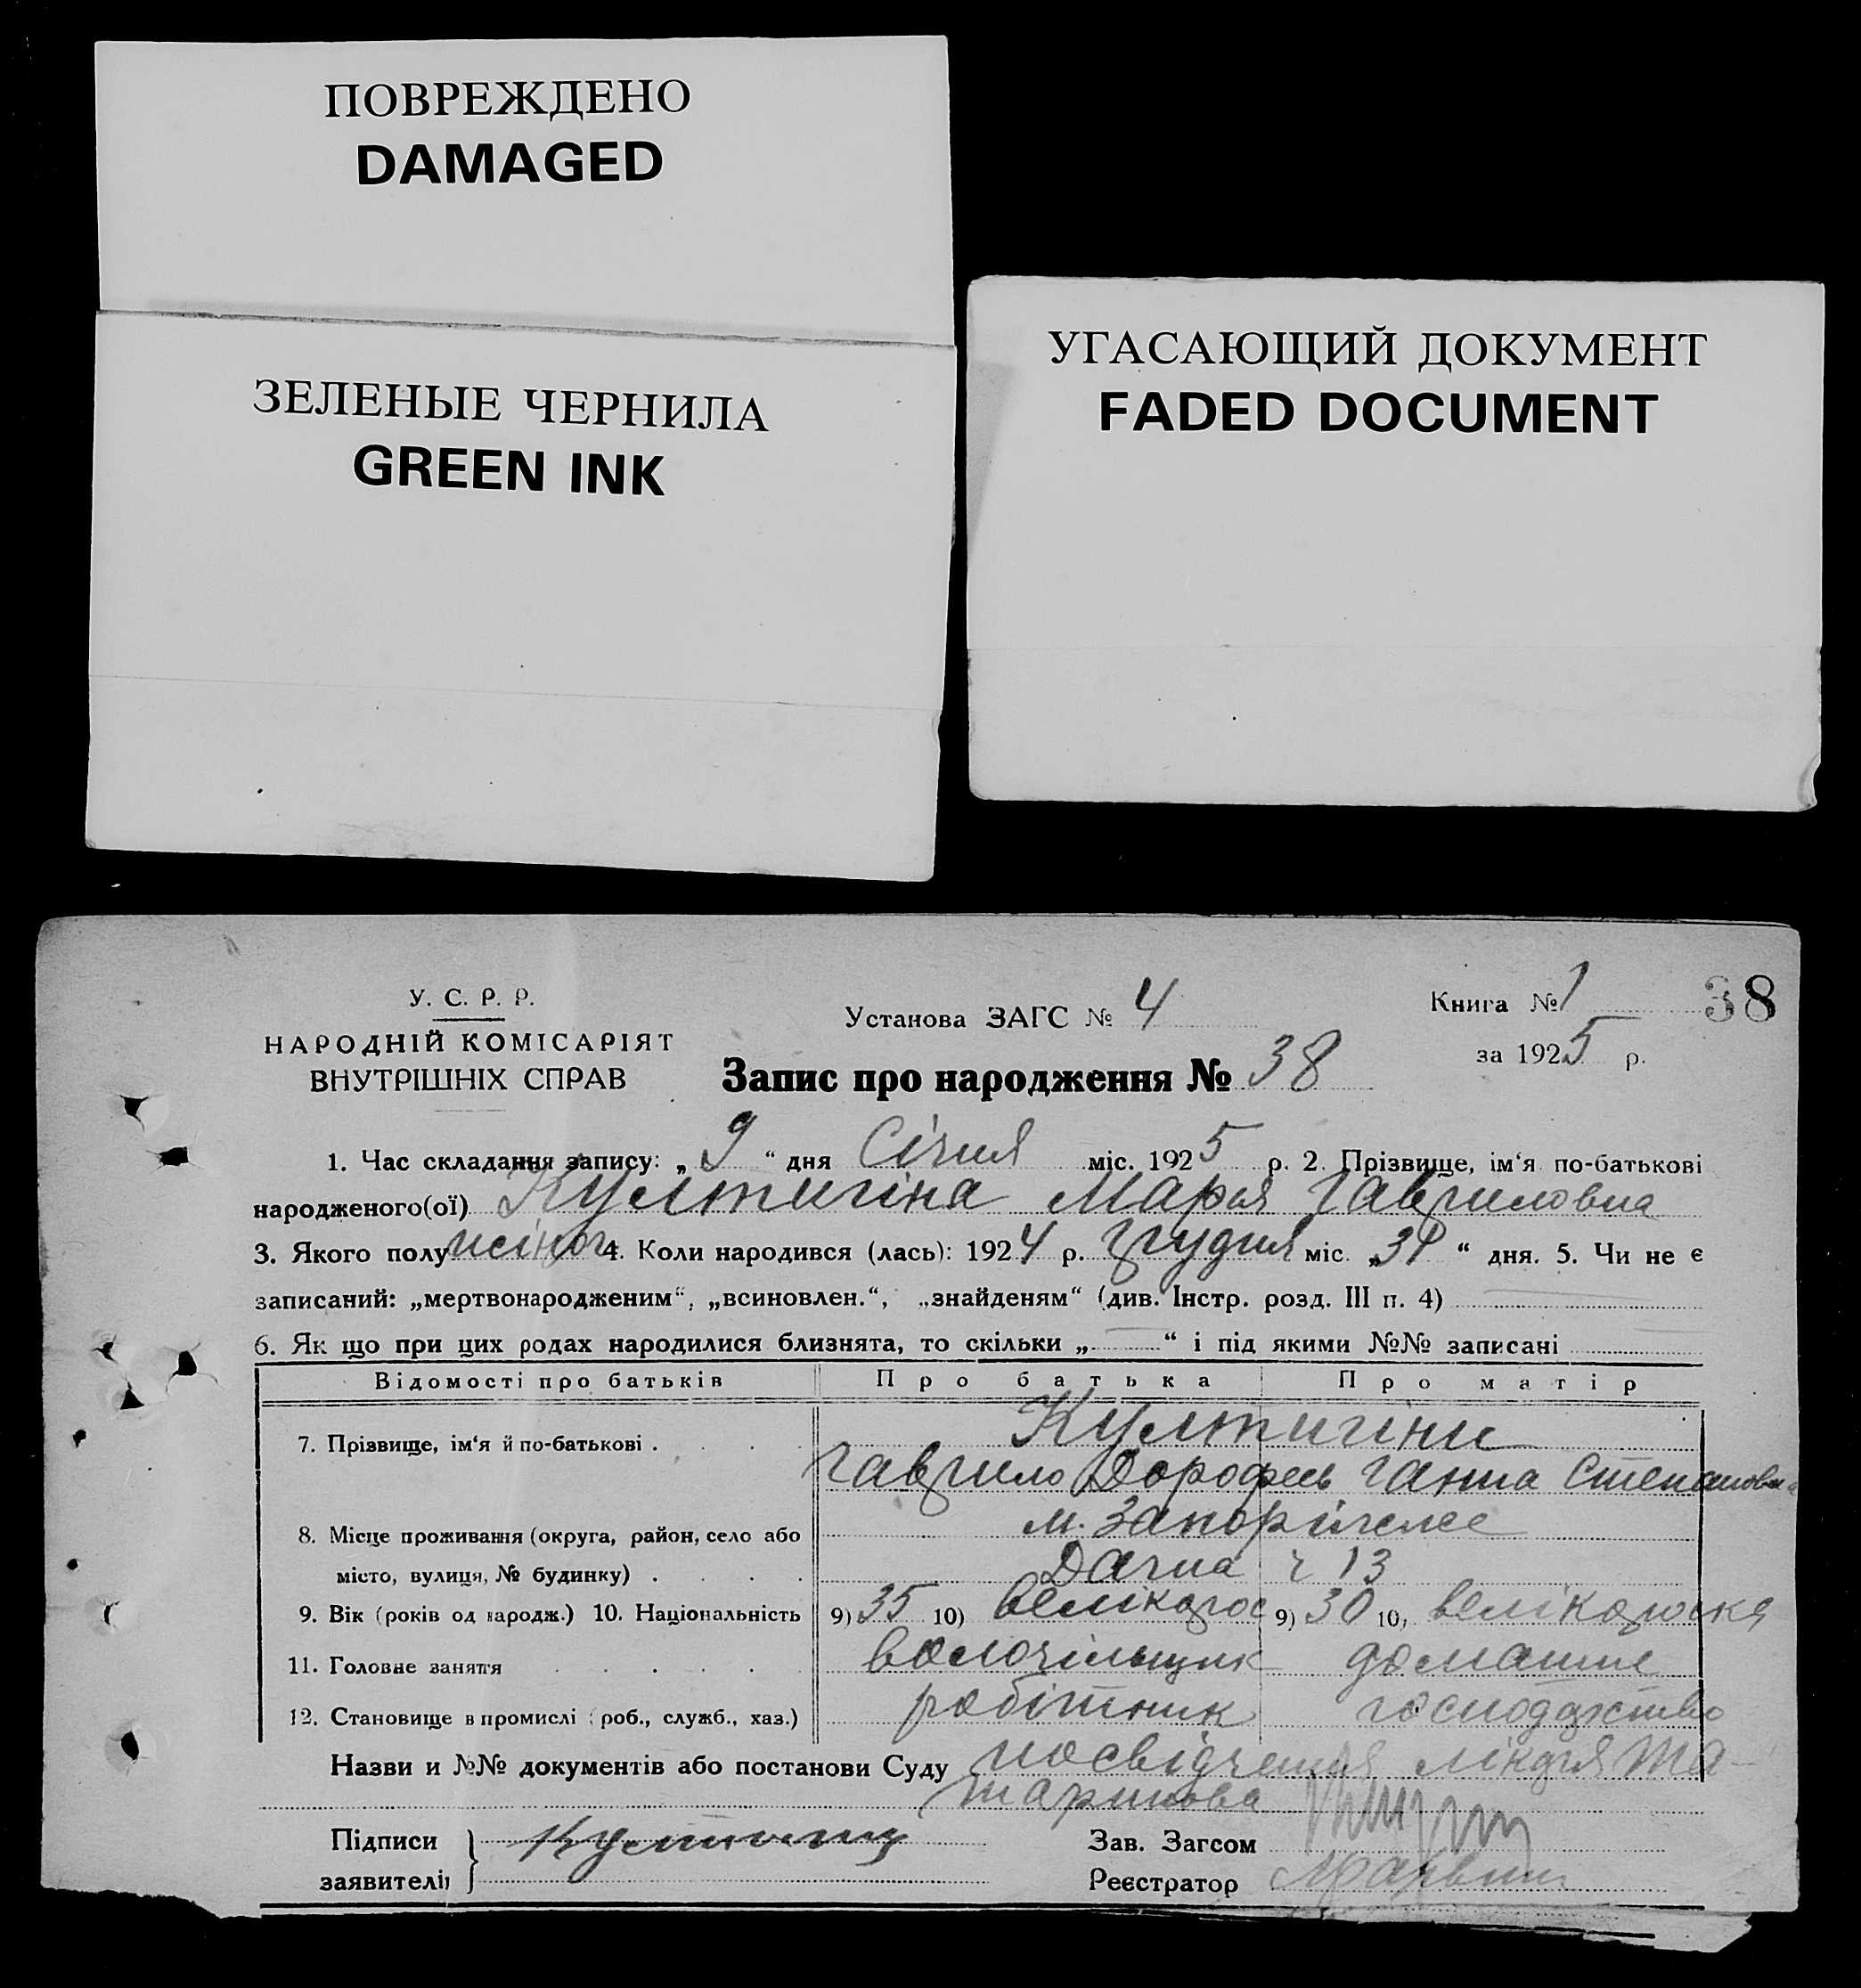 ПОВРЕЖДЕНО
DAMAGED
ЗЕЛЕНЫЕ ЧЕРНИЛА
GREEN INK
УГАСАЮЩИЙ ДОКУМЕНТ
FADED DOCUMENT
У. С. Р. Р.
НАРОДНІЙ КОМІСАРІЯТ
ВНУТРІШНІХ СПРАВ
Установа ЗАГС № 4
Книга № 1
38
за 1925 р.
Запис про народження № 38
1. Час складання запису: „ 9 “ дня Січня міс. 1925 р. 2. Прізвище, ім‘я по-батькові
народженого(ої) Култигіна Марья Гавриловна
3. Якого полу жіноч 4. Коли народився (лась): 1924 р. Грудня міс. „31“ дня. 5. Чи не є
записаний: „мертвонародженим“, „всиновлен.“, „знайденям“ (див. Інстр. розд. III п. 4)
6. Як що при цих родах народилися близнята, то скільки „ — “ і під якими №№ записані
Відомості про батьків Про батька Про матір
7. Прізвище, ім‘я й по-батькові . Култигіни
Гаврило Дорофеев Ганна Степановна
8. Місце проживання (округа, район, село або м. Запоріжжє
місто, вулиця, № будинку) . Дачна ч 13
9. Вік (років од народж.) 10. Національність 9) 35 10) велікорос 9) 30 10, велікороска
11. Головне заняття волочільщик домашне
12. Становище в промислі (роб., служб., хаз.) робітник господарство
Назви и №№ документів або постанови Суду посвідчення лікаря Та-
таринова
Підписи Зав. Загсом
заявителів Реєстратор